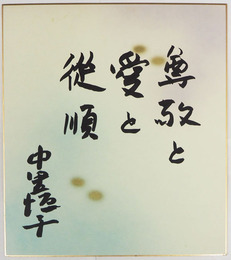 尊敬と
愛と
従順
中里恒子